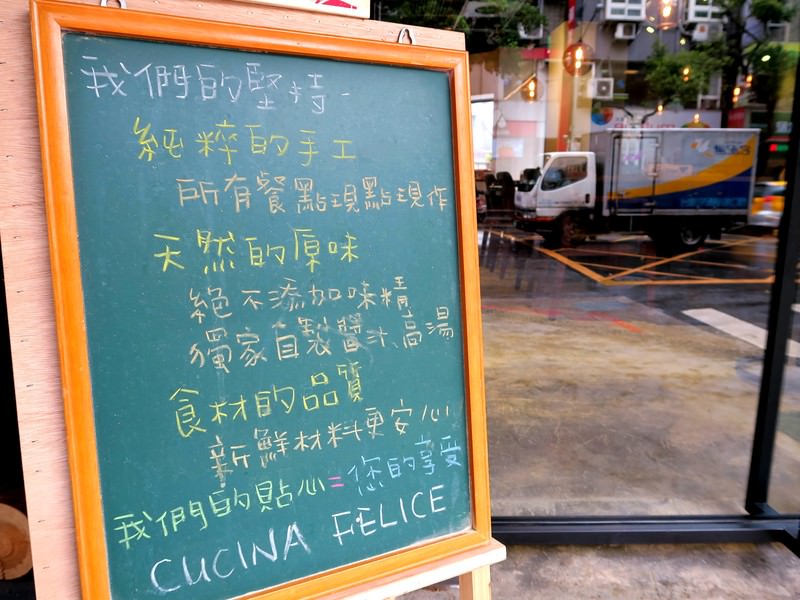 我們的堅持-
純粹的手工
所有餐點現點現作
天然的原味
絕不添加味精
獨家自製醬汁、高湯
食材的品質
新鮮材料更安心
我們的貼心=您的享受
CUCINA FELICE